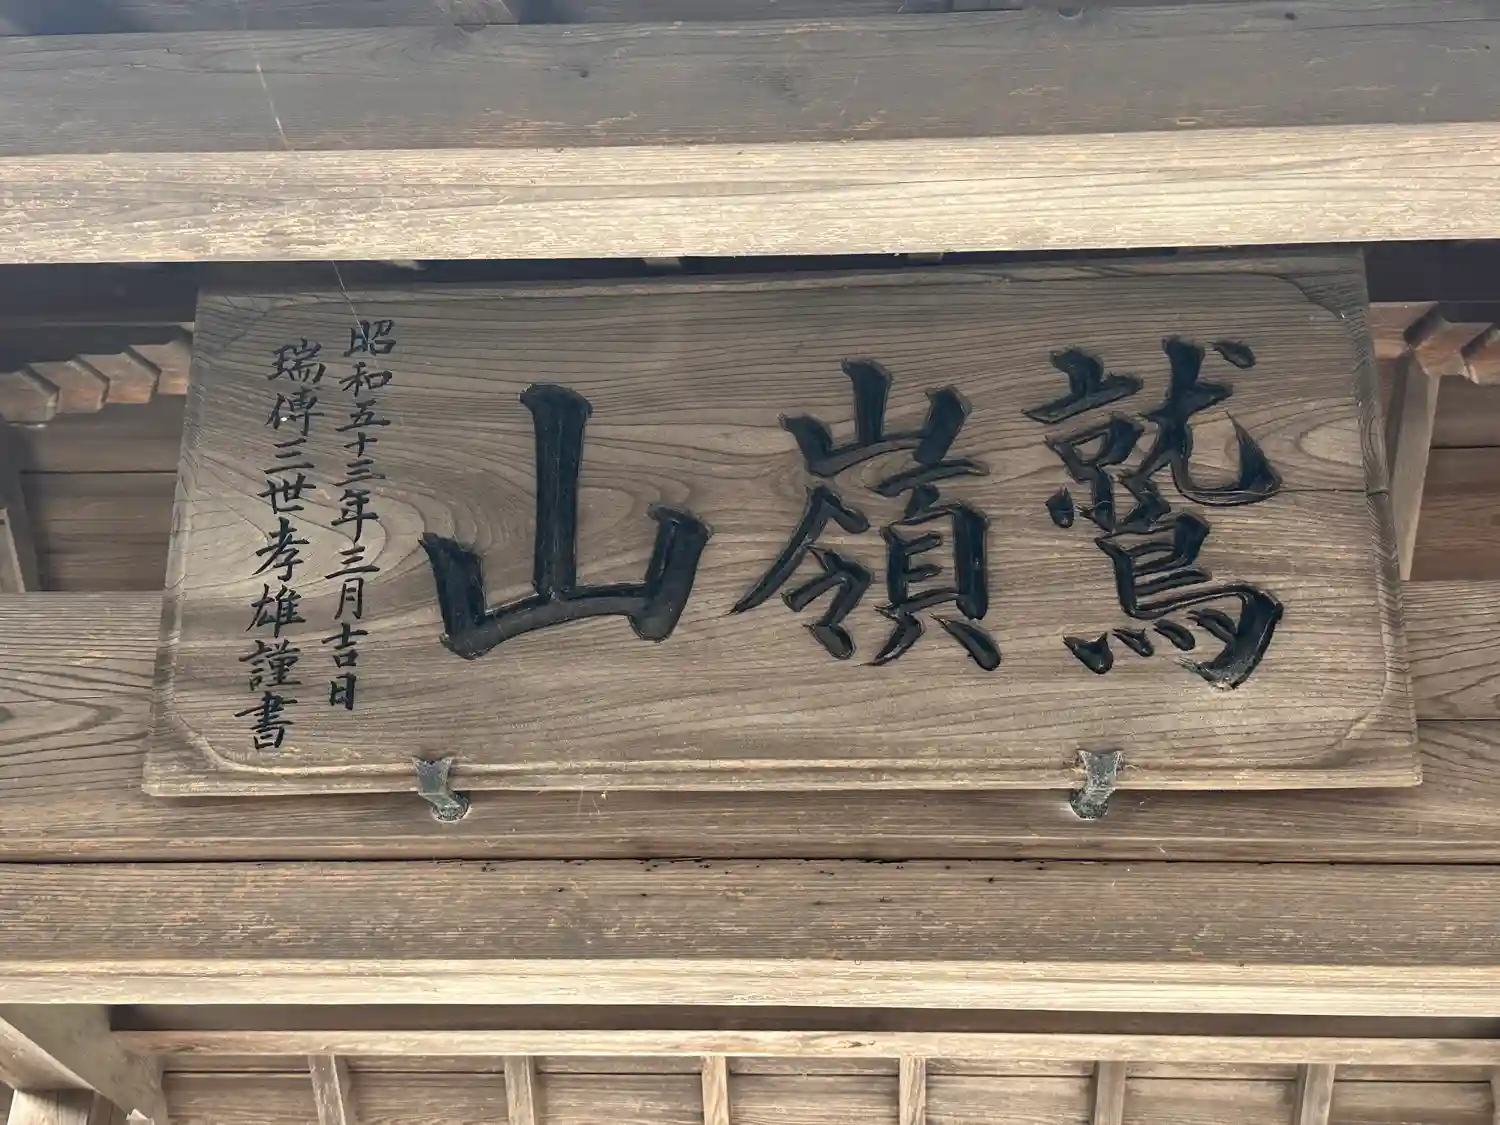 鷲嶺山
昭和五十三年三月吉日
瑞傳三世孝雄謹書